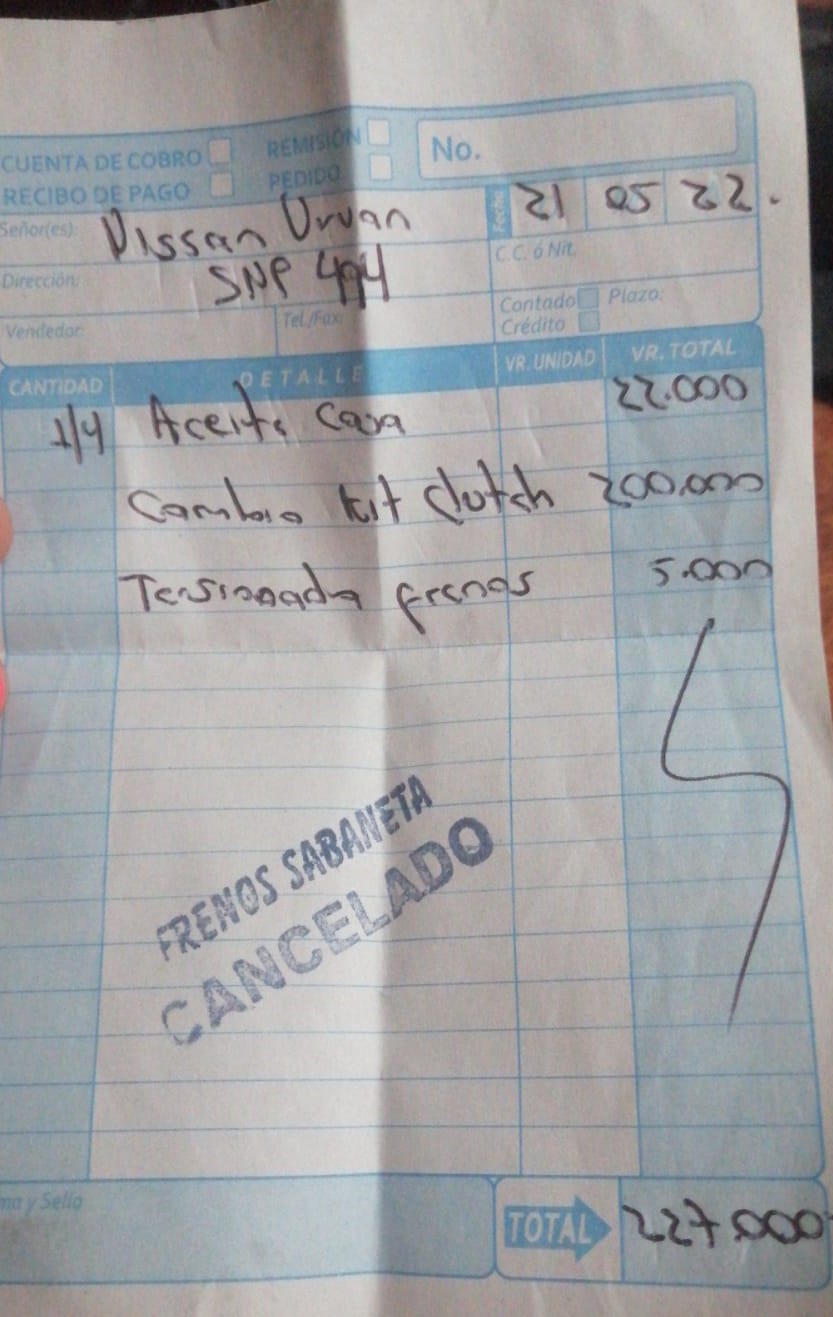 CUENTA DE COBRO REMISIÓN No.
RECIBO DE PAGO PEDIDO
Señor(es): Nissan Urvan Fecha 21 05 22.
C.C. ó Nit.
Dirección: SNP 494
Contado Plazo:
Vendedor: Tel./Fax: Crédito
CANTIDAD DETALLE VR. UNIDAD VR. TOTAL
1/4 Aceite Caja 22.000
Cambio kit clutch 200.000
Tensionada frenos 5.000
FRENOS SABANETA
CANCELADO
ma y Sello
TOTAL 227.000